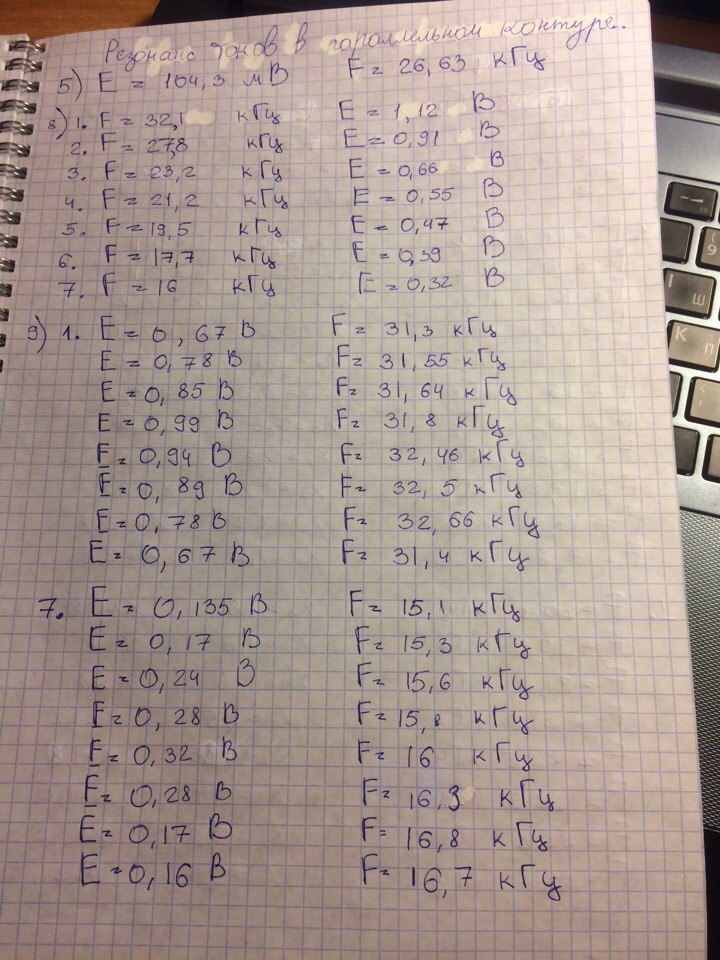 Резонанс токов в параллельном контуре..
5) E = 104,3 мВ F = 26,63 кГц
8) 1. F = 32,1 кГц E = 1,12 В
2. F = 27,8 кГц E = 0,91 В
3. F = 23,2 кГц E = 0,66 В
4. F = 21,2 кГц E = 0,55 В
5. F = 19,5 кГц E = 0,47 В
6. F = 17,7 кГц E = 0,39 В
7. F = 16 кГц E = 0,32 В
9) 1. E = 0,67 В F = 31,3 кГц
E = 0,78 В F = 31,55 кГц
E = 0,85 В F = 31,64 кГц
E = 0,99 В F = 31,8 кГц
E = 0,94 В F = 32,46 кГц
E = 0,89 В F = 32,5 кГц
E = 0,78 В F = 32,66 кГц
E = 0,67 В F = 31,4 кГц
7. E = 0,135 В F = 15,1 кГц
E = 0,17 В F = 15,3 кГц
E = 0,24 В F = 15,6 кГц
E = 0,28 В F = 15,8 кГц
E = 0,32 В F = 16 кГц
E = 0,28 В F = 16,3 кГц
E = 0,17 В F = 16,8 кГц
E = 0,16 В F = 16,7 кГц